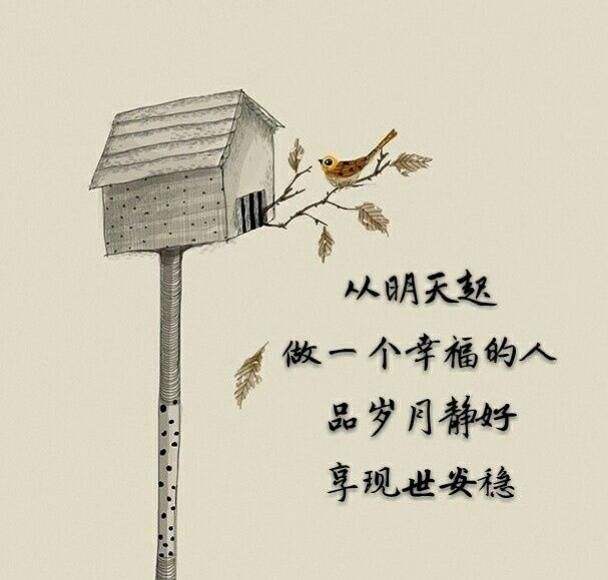 从明天起
做一个幸福的人
品岁月静好
享现世安稳